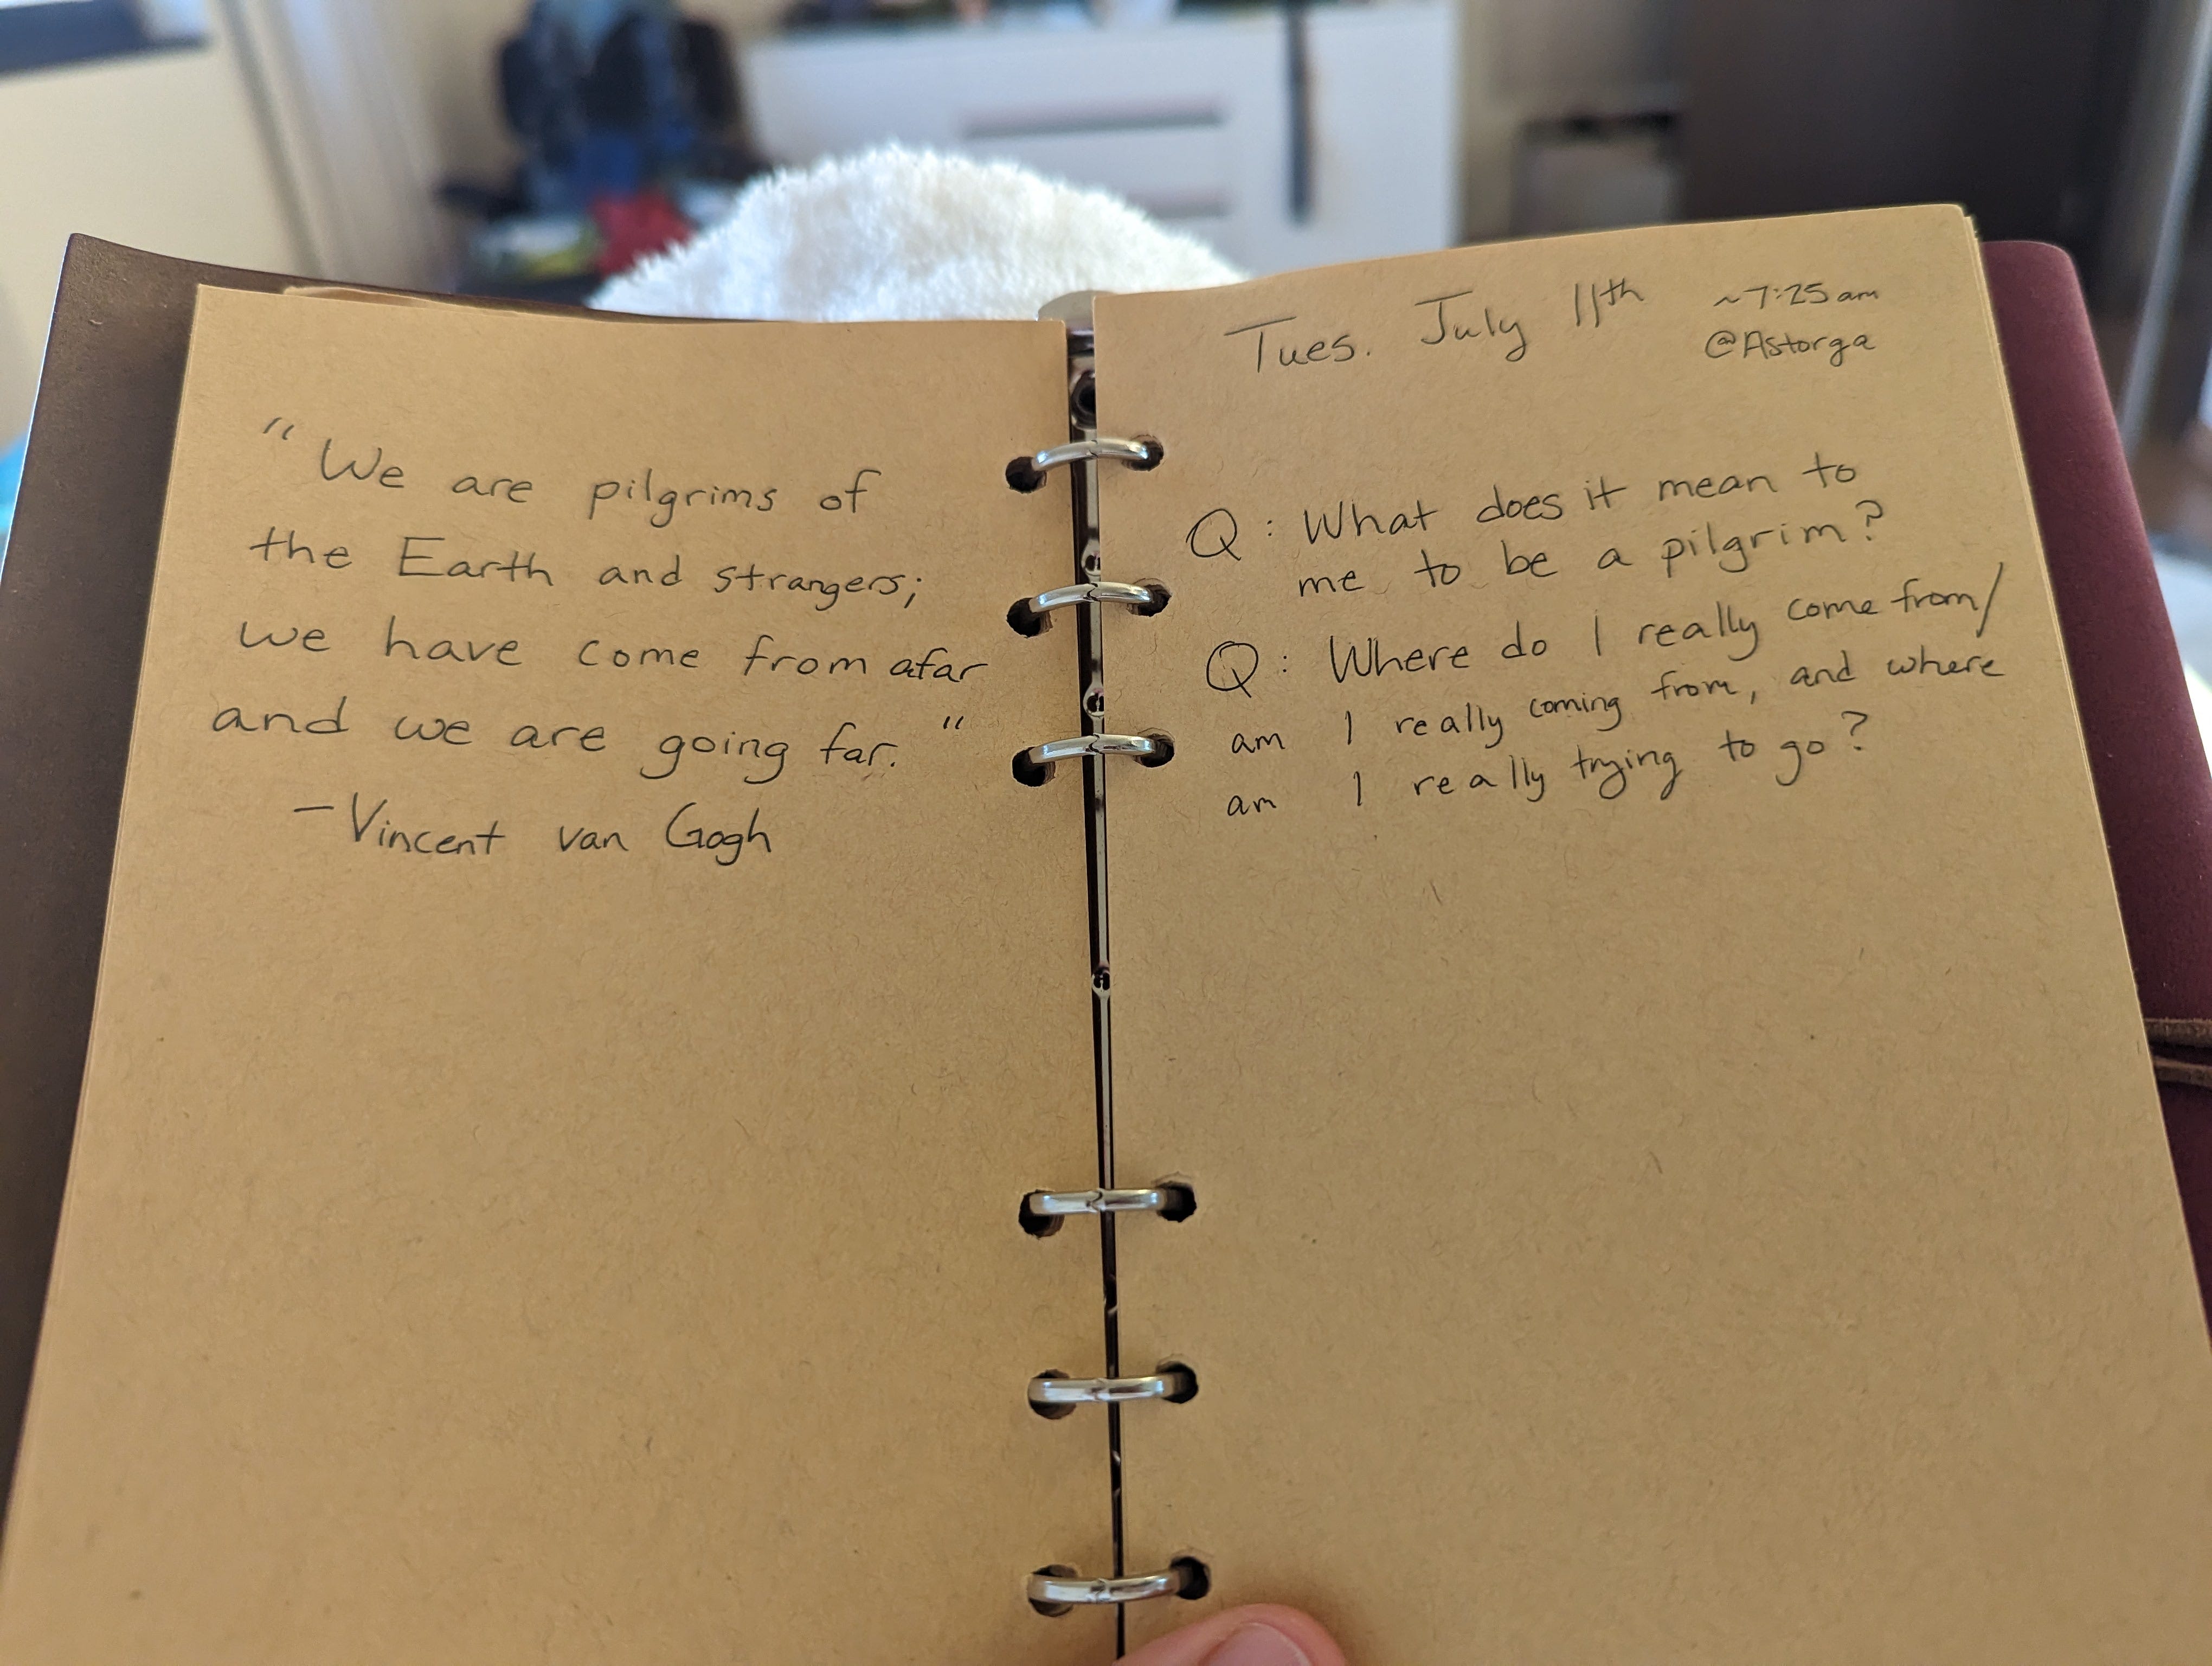 "We are pilgrims of
the Earth and strangers;
we have come from afar
and we are going far."
-Vincent van Gogh
Tues. July 11th ~7:25am
@Astorga
Q: What does it mean to
me to be a pilgrim?
Q: Where do I really come from/
am I really coming from, and where
am I really trying to go?